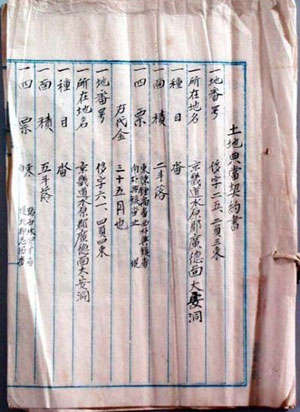 土地典當契約書
一地番号 侈字二五、二負三束
一所在地名 京畿道水原郡廣德面大安洞
一種目 畓
一面積 二斗落
一四票
右代金 三十五円也
一地番号 侈字六一、四負四束
一所在地名 京畿道水原郡廣德面大安洞
一種目 畓
一面積 五斗落
一四票 東